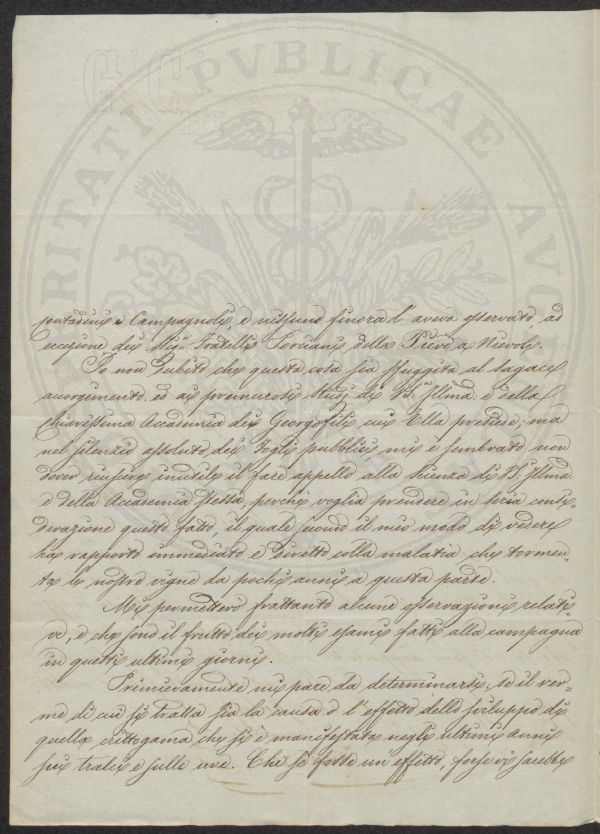 PROSPERITATI PVBLICAE AVGENDAE
contadini e Campagnoli, e nissuno finora l'aveva osservato, ad
eccezione dei Sig.ri Fratelli Lorciani della Pieve a Nievole.
Io non dubito che questa cosa sia sfuggita al sagace
accorgimento ed ai premurosi studj di V.S. Illma e della
Chiarissima Accademia dei Georgofili cui Ella presiede; ma
nel silenzio assoluto dei Fogli pubblici mi è sembrato non
dover riuscire inutile il fare appello alla scienza di V.S. Illma
e della Accademia stessa, perchè voglia prendere in seria consi-
derazione questo fatto, il quale secondo il mio modo di vedere
ha rapporto immediato e diretto colla malatia che tormen-
ta le nostre vigne da pochi anni a questa parte.
Mi permetterò frattanto alcune osservazioni relati-
ve, e che sono il frutto dei molti esami fatti alla campagna
in questi ultimi giorni.
Primieramente mi pare da determinarsi; se il ver-
me di cui si tratta sia la causa o l'effetto dello sviluppo di
quella crittogama che si è manifestata negli ultimi anni
sui tralci e sulle uve. Che se fosse un effetto, forse vi sarebbe